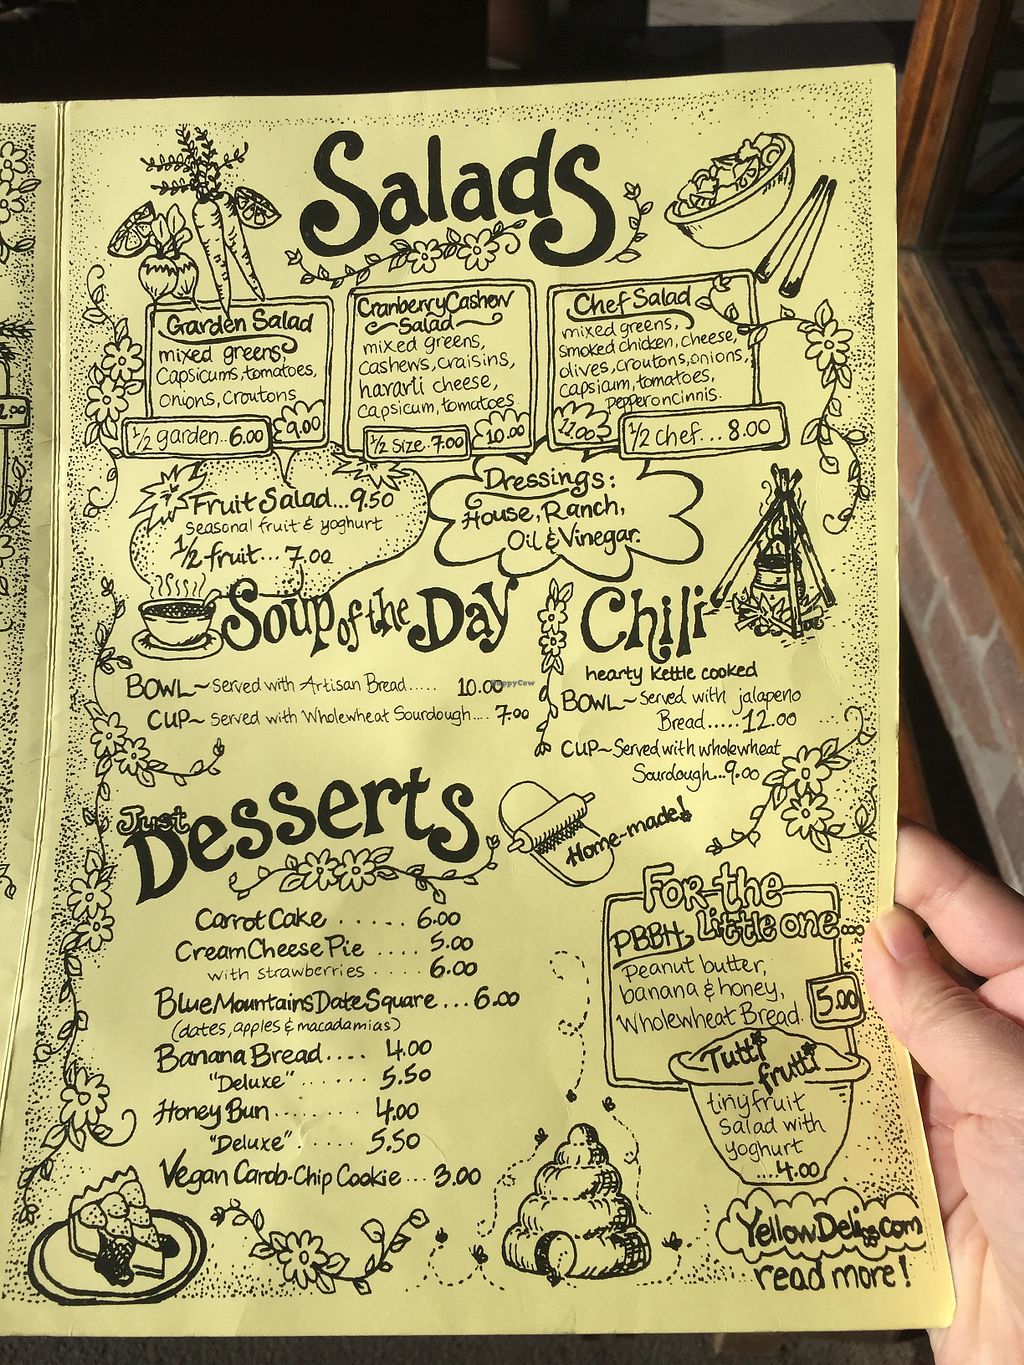 Salads
Garden Salad
mixed greens,
Capsicums, tomatoes,
onions, croutons
9.00
1/2 garden.. 6.00
Cranberry Cashew
Salad
mixed greens,
cashews, craisins,
havarti cheese,
capsicum, tomatoes
10.00
1/2 Size. 7.00
Chef Salad
mixed greens,
smoked chicken, cheese,
olives, croutons, onions,
capsicum, tomatoes,
pepperoncinnis.
11.00
1/2 chef... 8.00
2.00
Fruit Salad... 9.50
Seasonal fruit & yoghurt
1/2 fruit... 7.00
Dressings:
House, Ranch,
Oil & Vinegar.
Soup of the Day
BOWL~ Served with Artisan Bread..... 10.00
CUP~ Served with Wholewheat Sourdough.... 7.00
HappyCow
Chili
hearty kettle cooked
BOWL~ Served with jalapeno
Bread..... 12.00
CUP~ Served with wholewheat
Sourdough... 9.00
Just
Desserts
Home-made!
Carrot Cake ..... 6.00
Cream Cheese Pie .... 5.00
with strawberries .... 6.00
Blue Mountains Date Square... 6.00
(dates, apples & macadamias)
Banana Bread.... 4.00
"Deluxe"...... 5.50
Honey Bun........ 4.00
"Deluxe"..... 5.50
Vegan Carob-Chip Cookie... 3.00
For the
Little one...
PBBH,
Peanut butter,
banana & honey,
Wholewheat Bread.
5.00
Tutti
frutti
tiny fruit
Salad with
yoghurt
....4.00
YellowDeli.com
read more!